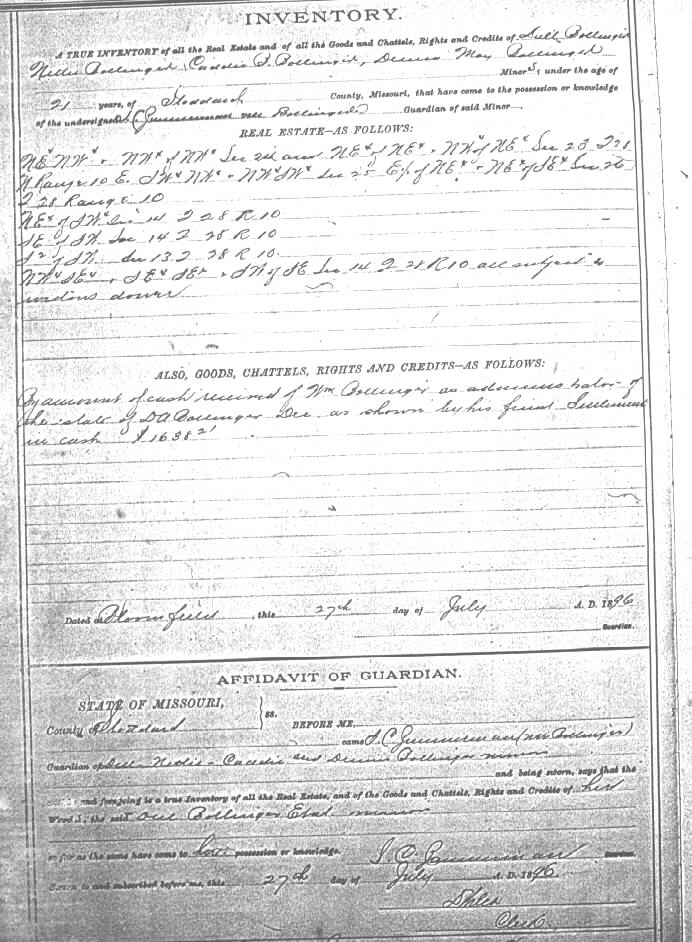 INVENTORY.
A TRUE INVENTORY of all the Real Estate and of all the Goods and Chattels, Rights and Credits of Dell Bollinger
Nellie Bollinger, Caddie Bollinger, May Bollinger
Minors, under the age of
21 years, of Stoddard County, Missouri, that have come to the possession or knowledge
of the undersigned Bollinger Guardian of said Minor
REAL ESTATE—AS FOLLOWS:
NE¼ NW¼ & NW¼ of NW¼ Sec 24 and NE¼ of NE¼ & NW¼ of NE¼ Sec 23 T 28
N Range 10 E. SW¼ NW¼ & NW¼ SW¼ Sec 25 E½ of NE¼ & NE¼ of SE¼ Sec 26
T 28 Range 10
NE¼ of SW¼ Sec 14 T 28 R 10
SE of SW Sec 14 T 28 R 10
of SW Sec 13 T 28 R 10.
NW¼ SE¼ & SE¼ SE¼ & SW of SE Sec 14 T 28 R 10 all subject to
widows dower
ALSO, GOODS, CHATTELS, RIGHTS AND CREDITS—AS FOLLOWS:
By amount of cash received of Wm Bollinger as administrator of
the estate of DA Bollinger Dec as shown by his final Settlement
in cash $1638 21
Dated at Bloomfield, this 27th day of July A. D. 1896
Guardian.
AFFIDAVIT OF GUARDIAN.
STATE OF MISSOURI,
County of Stoddard ss. BEFORE ME,
came S. C. (nee Bollinger)
Guardian of Nellie Caddie and Bollinger minors
and being sworn, says that the
and foregoing is a true Inventory of all the Real Estate, and of the Goods and Chattels, Rights and Credits of her
Wards, the said Bollinger Etal minors
so far as the same have come to her possession or knowledge.
S. C. Guardian.
Sworn to and subscribed before me, this 27th day of July A. D. 1896
Clerk